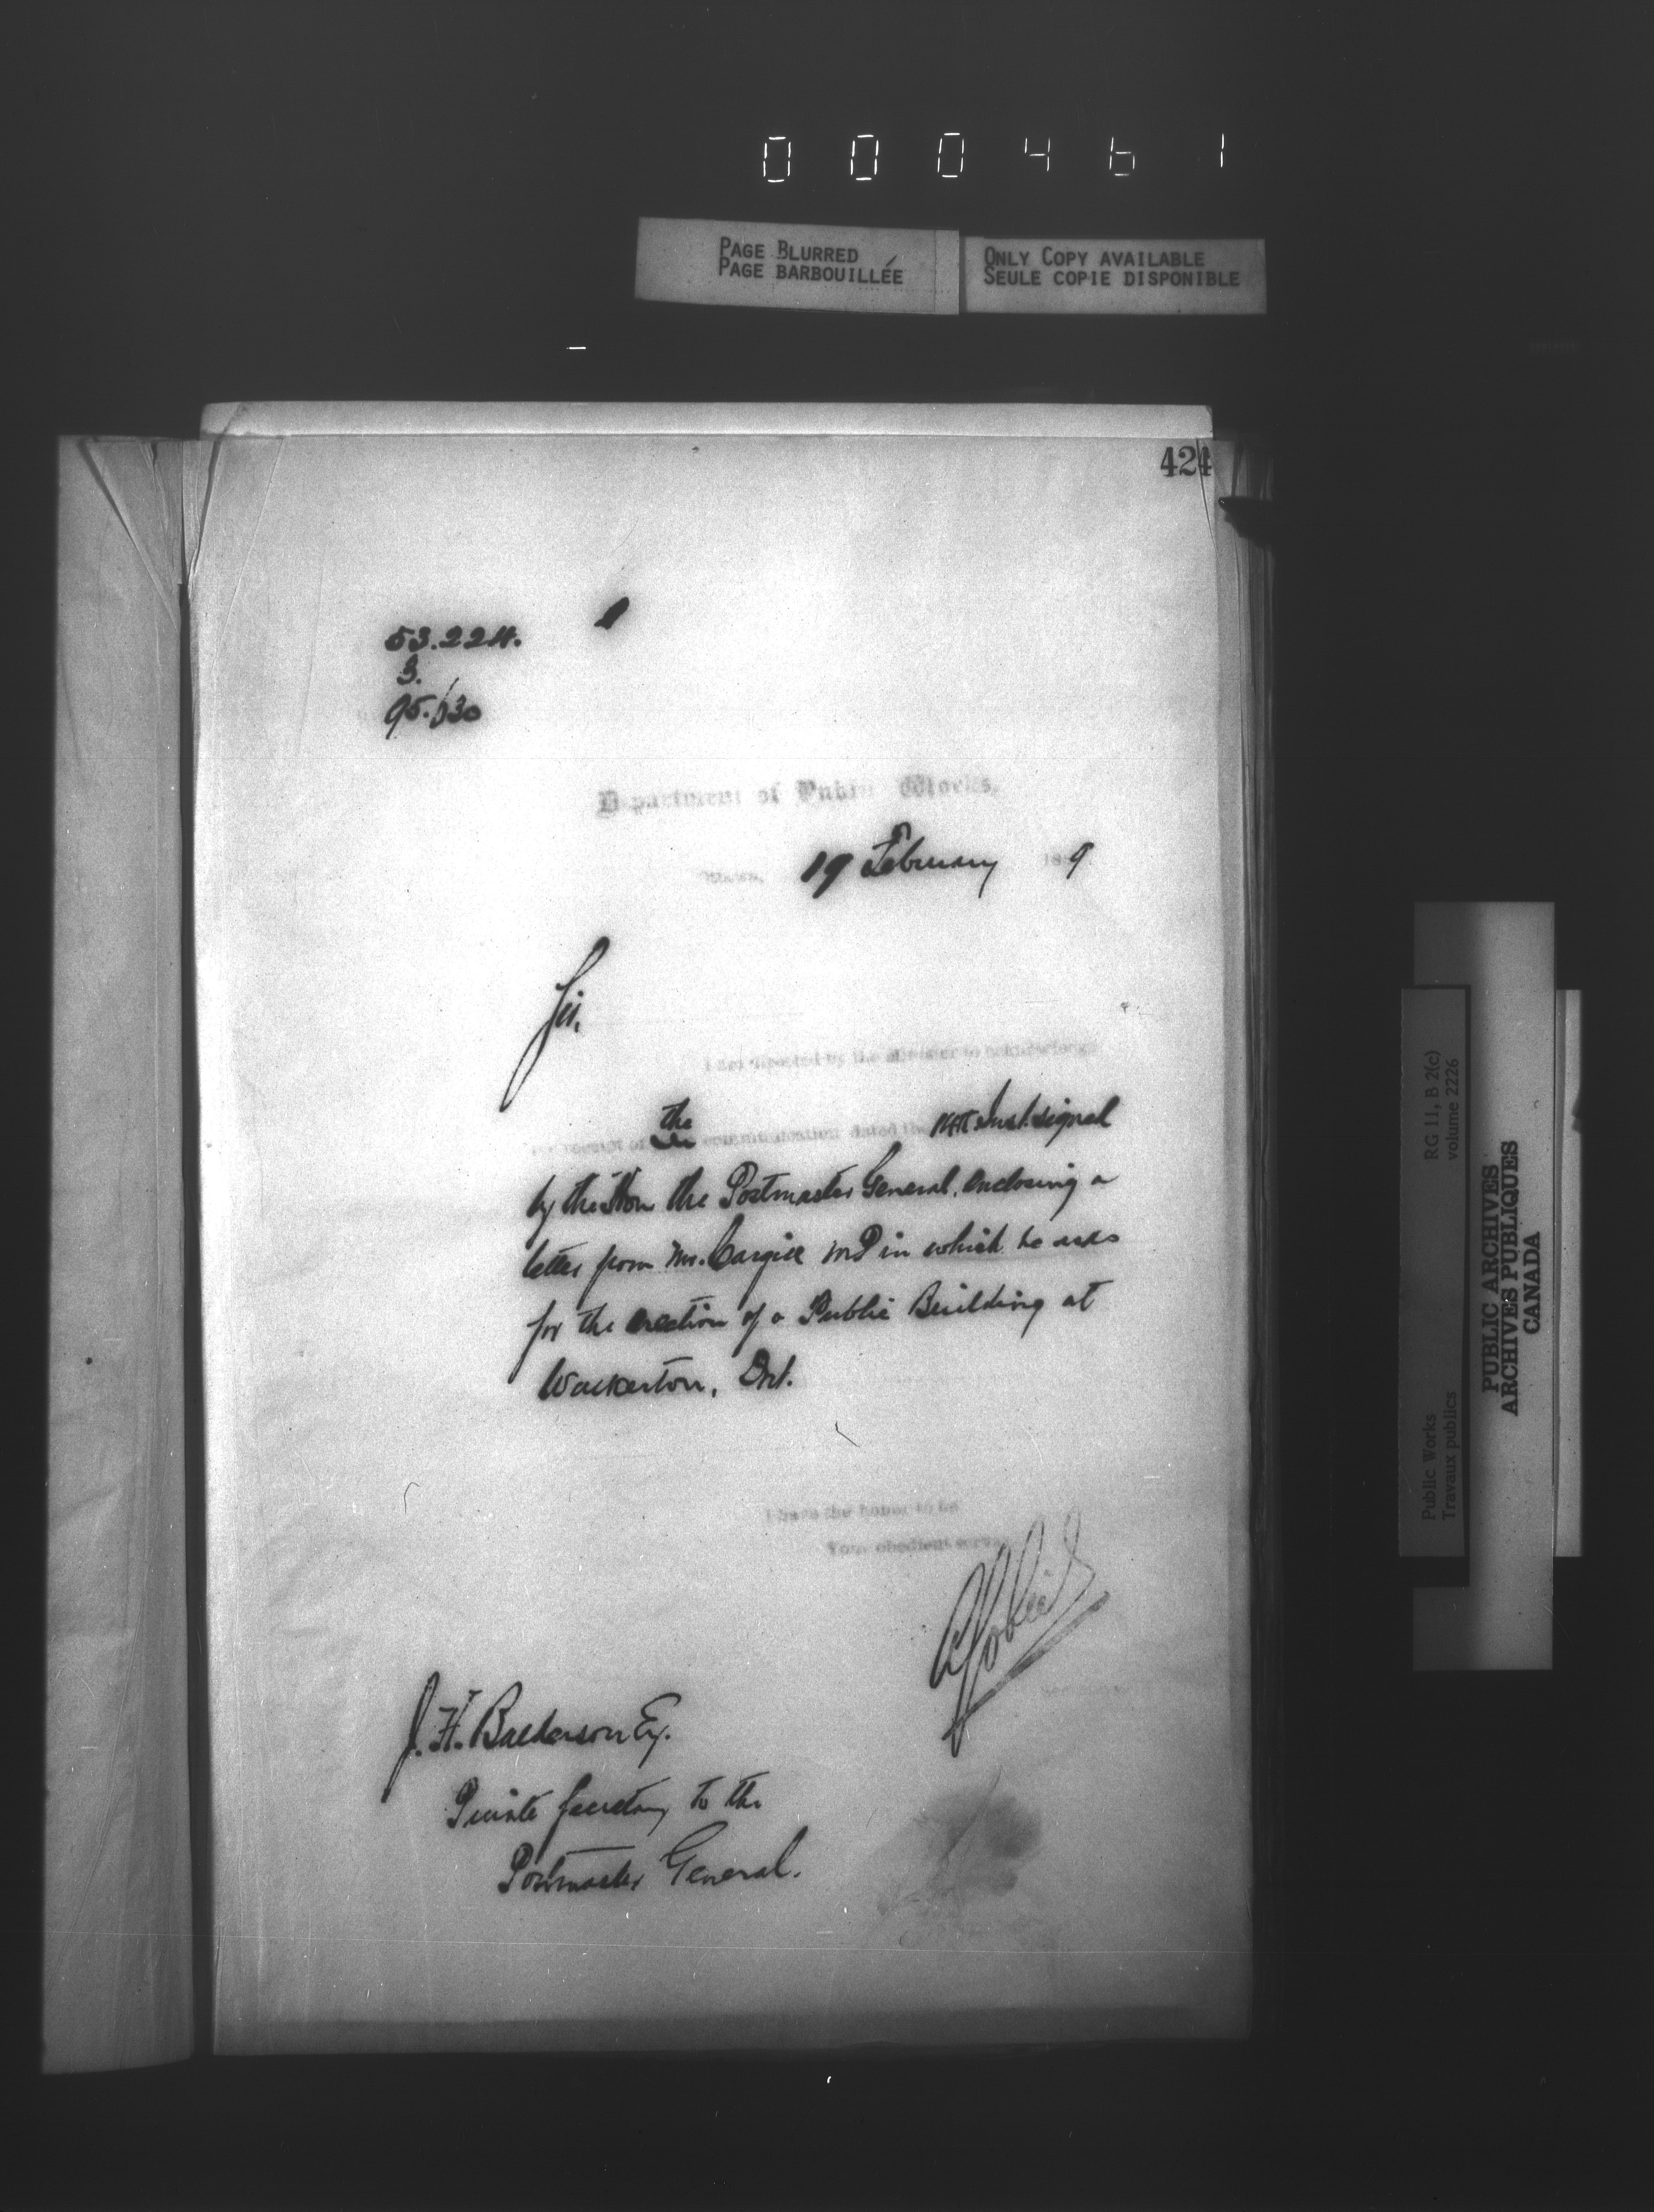 000461
PAGE BLURRED
PAGE BARBOUILLÉE
ONLY COPY AVAILABLE
SEULE COPIE DISPONIBLE
424
53.224.
3.
95.130
Department of Public Works,
Ottawa, 19 February 1889
Sir,
I am directed by the Minister to acknowledge
the receipt of the communication dated the Inst. signed
by the Hon the Postmaster General, enclosing a
letter from Mr. Cargill M.P in which he asks
for the erection of a Public Building at
Walkerton, Ont.
I have the honor to be
Your obedient servant
A Gobeil
J. H. Balderson Esq.
Private Secretary to the
Postmaster General.
RG 11, B 2(c)
volume 2226
Public Works
Travaux publics
PUBLIC ARCHIVES
ARCHIVES PUBLIQUES
CANADA